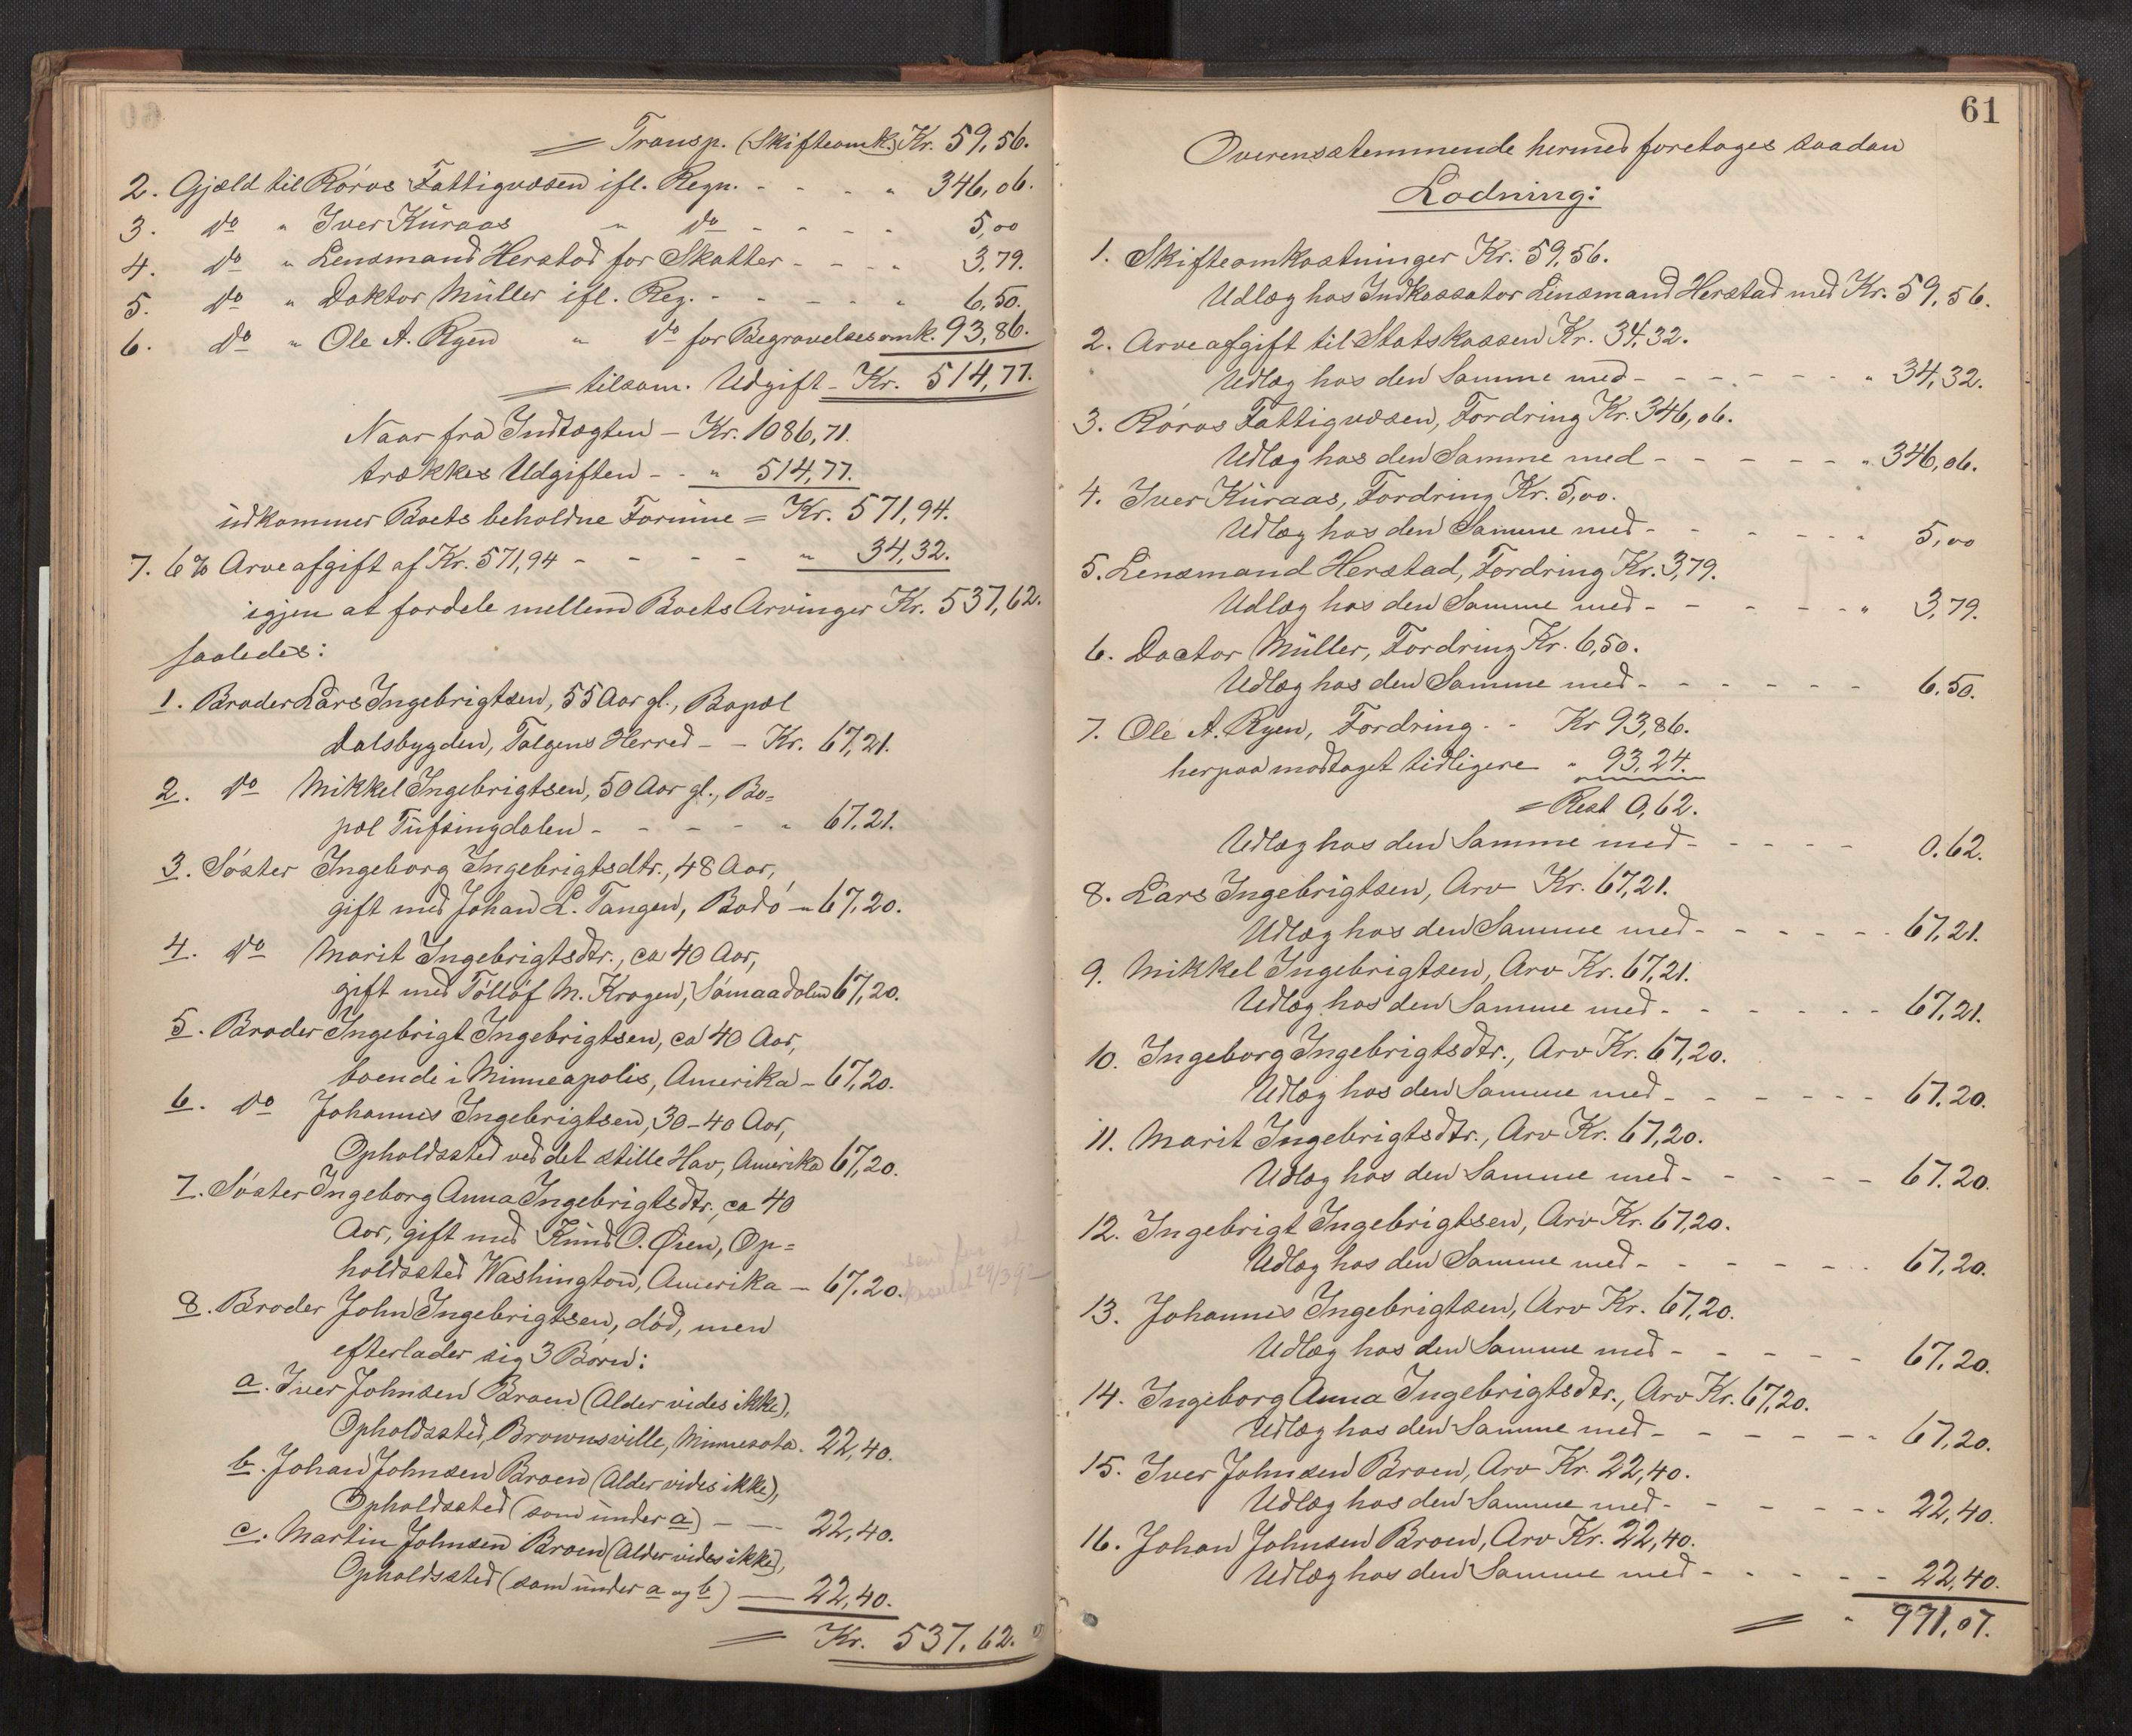 = Transp. (Skifteomk.) Kr. 59,56.
2. Gjæld til Røros Fattigvæsen ifl. Regn. - - - - " 346,06.
3. do " Iver Kuraas " do - - - - - 5,00
4. do " Lensmand Herstad for Skatter - - - " 3,79.
5. do " Doktor Müller ifl. Reg. - - - - - " 6,50.
6. do " Ole A. Ryen " do for Begravelsesomk. 93,86.
= tilsam. Udgift - Kr. 514,77.
Naar fra Indtægten - Kr. 1086,71.
trækkes Udgiften - - " 514,77.
udkommer Boets beholdne Formue = Kr. 571,94.
7. 6% Arveafgift af Kr. 571,94 - - - - - " 34,32.
igjen at fordele mellem Boets Arvinger Kr. 537,62.
saaledes:
1. Broder Lars Ingebrigtsen, 55 Aar gl., Bopæl
Dalsbygden, Tolgens Herred - - Kr. 67,21.
2. do Mikkel Ingebrigtsen, 50 Aar gl., Bo=
pæl Tufsingdalen - - - - - " 67,21.
3. Søster Ingeborg Ingebrigtsdtr., 48 Aar,
gift med Johan L. Tangen, Bodø - " 67,20.
4. do Marit Ingebrigtsdtr., ca 40 Aar,
gift med Tølløf M. Krogen, Sømaadalen 67,20.
5. Broder Ingebrigt Ingebrigtsen, ca 40 Aar,
boende i Minneapolis, Amerika - 67,20.
6. do Johannes Ingebrigtsen, 30-40 Aar,
Opholdssted ved det stille Hav, Amerika 67,20.
7. Søster Ingeborg Anna Ingebrigtsdtr., ca 40
Aar, gift med Knud O. Øien, Op=
holdssted Washington, Amerika - 67,20.
8. Broder John Ingebrigtsen, død, men
efterlader sig 3 Børn:
a. Iver Johnsen Broen (Alder vides ikke),
Opholdssted, Brownsville, Minnesota. 22,40.
b. Johan Johnsen Broen (Alder vides ikke),
Opholdssted (som under a) - - 22,40.
c. Martin Johnsen Broen (Alder vides ikke),
Opholdssted (som under a og b) - 22,40.
= Kr. 537,62.
61
Overensstemmende hermed foretages saadan
Lodning:
1. Skifteomkostninger Kr. 59,56.
Udlæg hos Indkassator Lensmand Herstad med Kr. 59,56.
2. Arveafgift til Statskassen Kr. 34,32.
Udlæg hos den Samme med - - - - - - - " 34,32.
3. Røros Fattigvæsen, Fordring Kr. 346,06.
Udlæg hos den Samme med - - - - - - " 346,06.
4. Iver Kuraas, Fordring Kr. 5,00.
Udlæg hos den Samme med - - - - - - 5,00
5. Lensmand Herstad, Fordring Kr. 3,79.
Udlæg hos den Samme med - - - - - - " 3,79.
6. Doctor Müller, Fordring Kr. 6,50.
Udlæg hos den Samme med - - - - - - 6.50.
7. Ole A. Ryen, Fordring - - Kr 93,86.
herpaa modtaget tidligere " 93,24.
= Rest 0,62.
Udlæg hos den Samme med - - - - - 0.62.
8. Lars Ingebrigtsen, Arv Kr. 67,21.
Udlæg hos den Samme med - - - - - - 67,21.
9. Mikkel Ingebrigtsen, Arv Kr. 67,21.
Udlæg hos den Samme med - - - - - - 67,21.
10. Ingeborg Ingebrigtsdtr., Arv Kr. 67,20.
Udlæg hos den Samme med - - - - - - 67.20.
11. Marit Ingebrigtsdtr., Arv Kr. 67,20.
Udlæg hos den Samme med - - - - - - 67.20.
12. Ingebrigt Ingebrigtsen, Arv Kr. 67,20.
Udlæg hos den Samme med - - - - - - 67,20.
13. Johannes Ingebrigtsen, Arv Kr. 67,20.
Udlæg hos den Samme med - - - - - 67,20.
14. Ingeborg Anna Ingebrigtsdtr., Arv Kr. 67,20.
Udlæg hos den Samme med - - - - - - 67,20.
15. Iver Johnsen Broen, Arv Kr. 22,40.
Udlæg hos den Samme med - - - - - - 22,40.
16. Johan Johnsen Broen, Arv Kr. 22,40.
Udlæg hos den Samme med - - - - - 22,40.
= " 971,07.